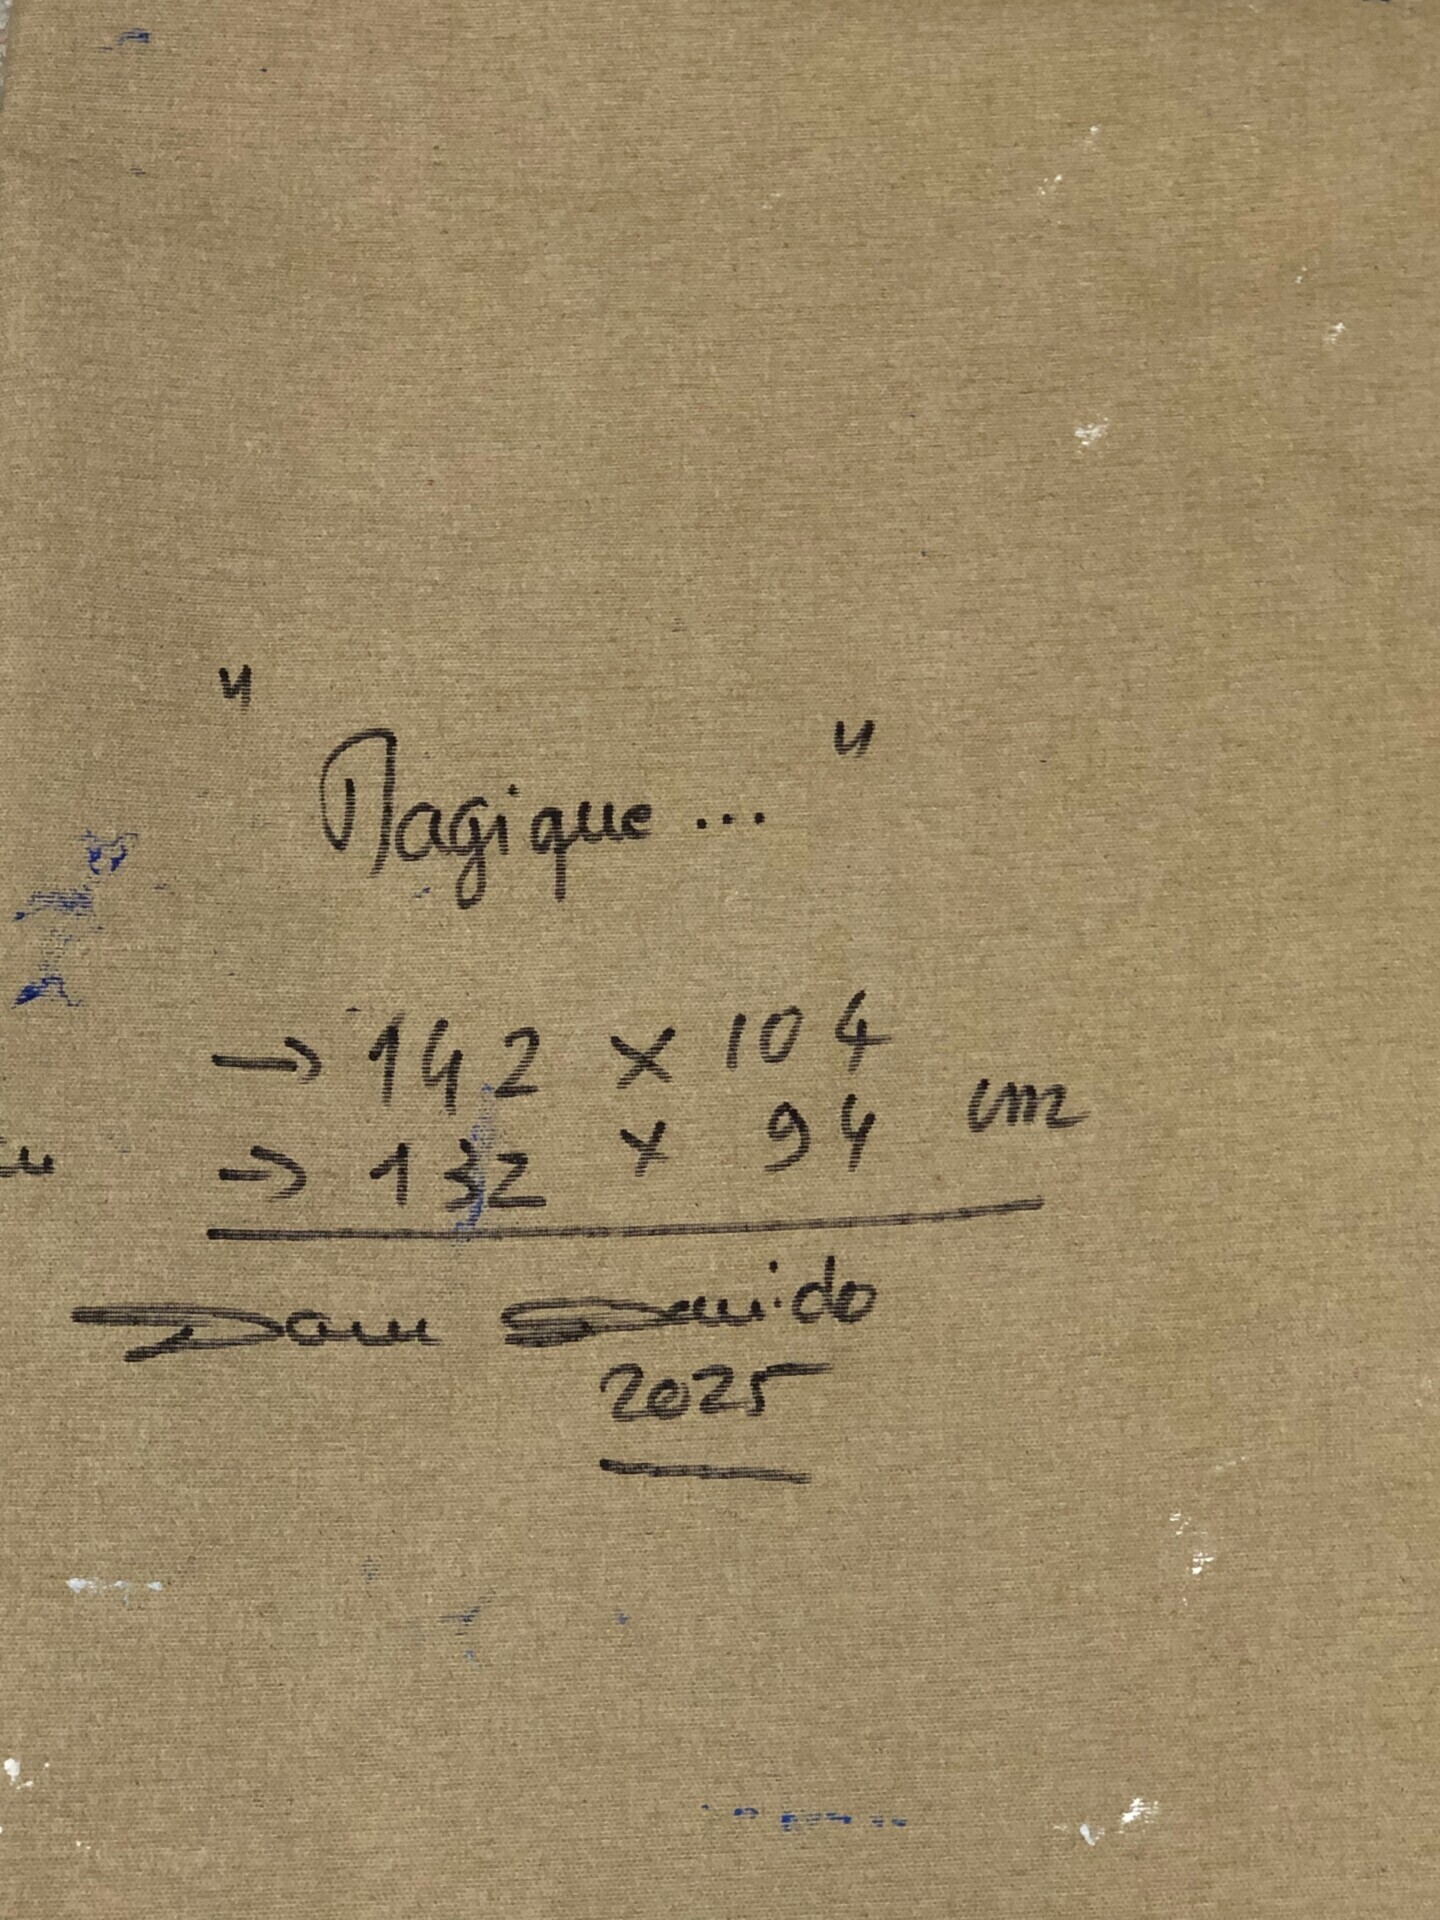 " Magique ... "
→ 142 x 104
→ 132 x 94 cm
Dam Davido
2025